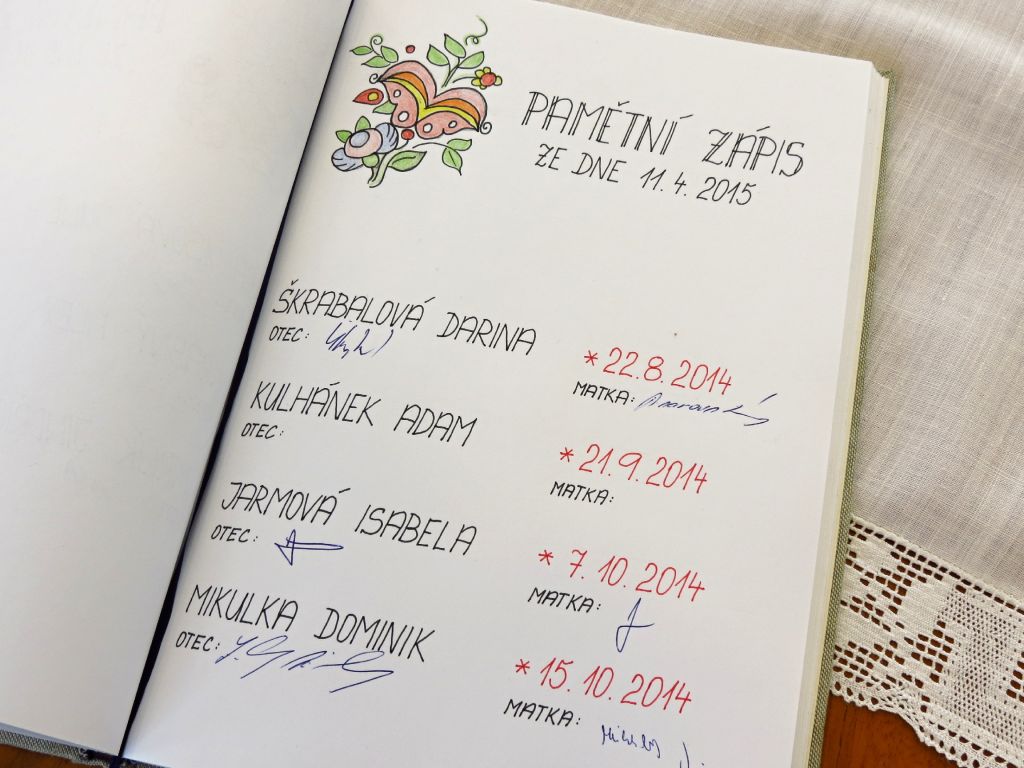 PAMĚTNÍ ZÁPIS
ZE DNE 11. 4. 2015
ŠKRABALOVÁ DARINA * 22.8.2014
OTEC: MATKA:
KULHÁNEK ADAM * 21.9.2014
OTEC: MATKA:
JARMOVÁ ISABELA * 7.10.2014
OTEC: MATKA:
MIKULKA DOMINIK * 15.10.2014
OTEC: MATKA: